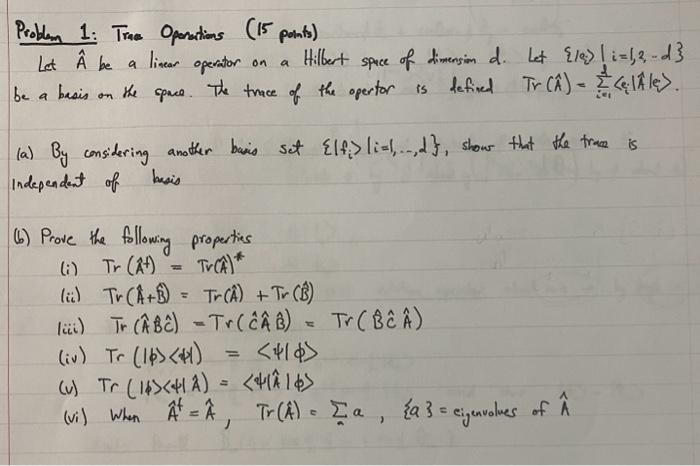 Problem 1: Trace Operations (15 points)
Let Â be a linear operator on a Hilbert space of dimension d. Let {|eᵢ> | i=1,2,..d}
be a basis on the space. The trace of the opertor is defined Tr(Â) = Σᵢ₌₁ᵈ <eᵢ|Â|eᵢ>.
(a) By considering another basis set {|fᵢ> | i=1,..,d}, show that the trace is
Independent of basis
(b) Prove the following properties
(i) Tr(Â†) = Tr(Â)*
(ii) Tr(Â+B̂) = Tr(Â) + Tr(B̂)
(iii) Tr(ÂB̂Ĉ) = Tr(ĈÂB̂) = Tr(B̂ĈÂ)
(iv) Tr(|ϕ><ψ|) = <ψ|ϕ>
(v) Tr(|ϕ><ψ|Â) = <ψ|Â|ϕ>
(vi) When Â† = Â, Tr(Â) = Σₐ a, {a} = eigenvalues of Â